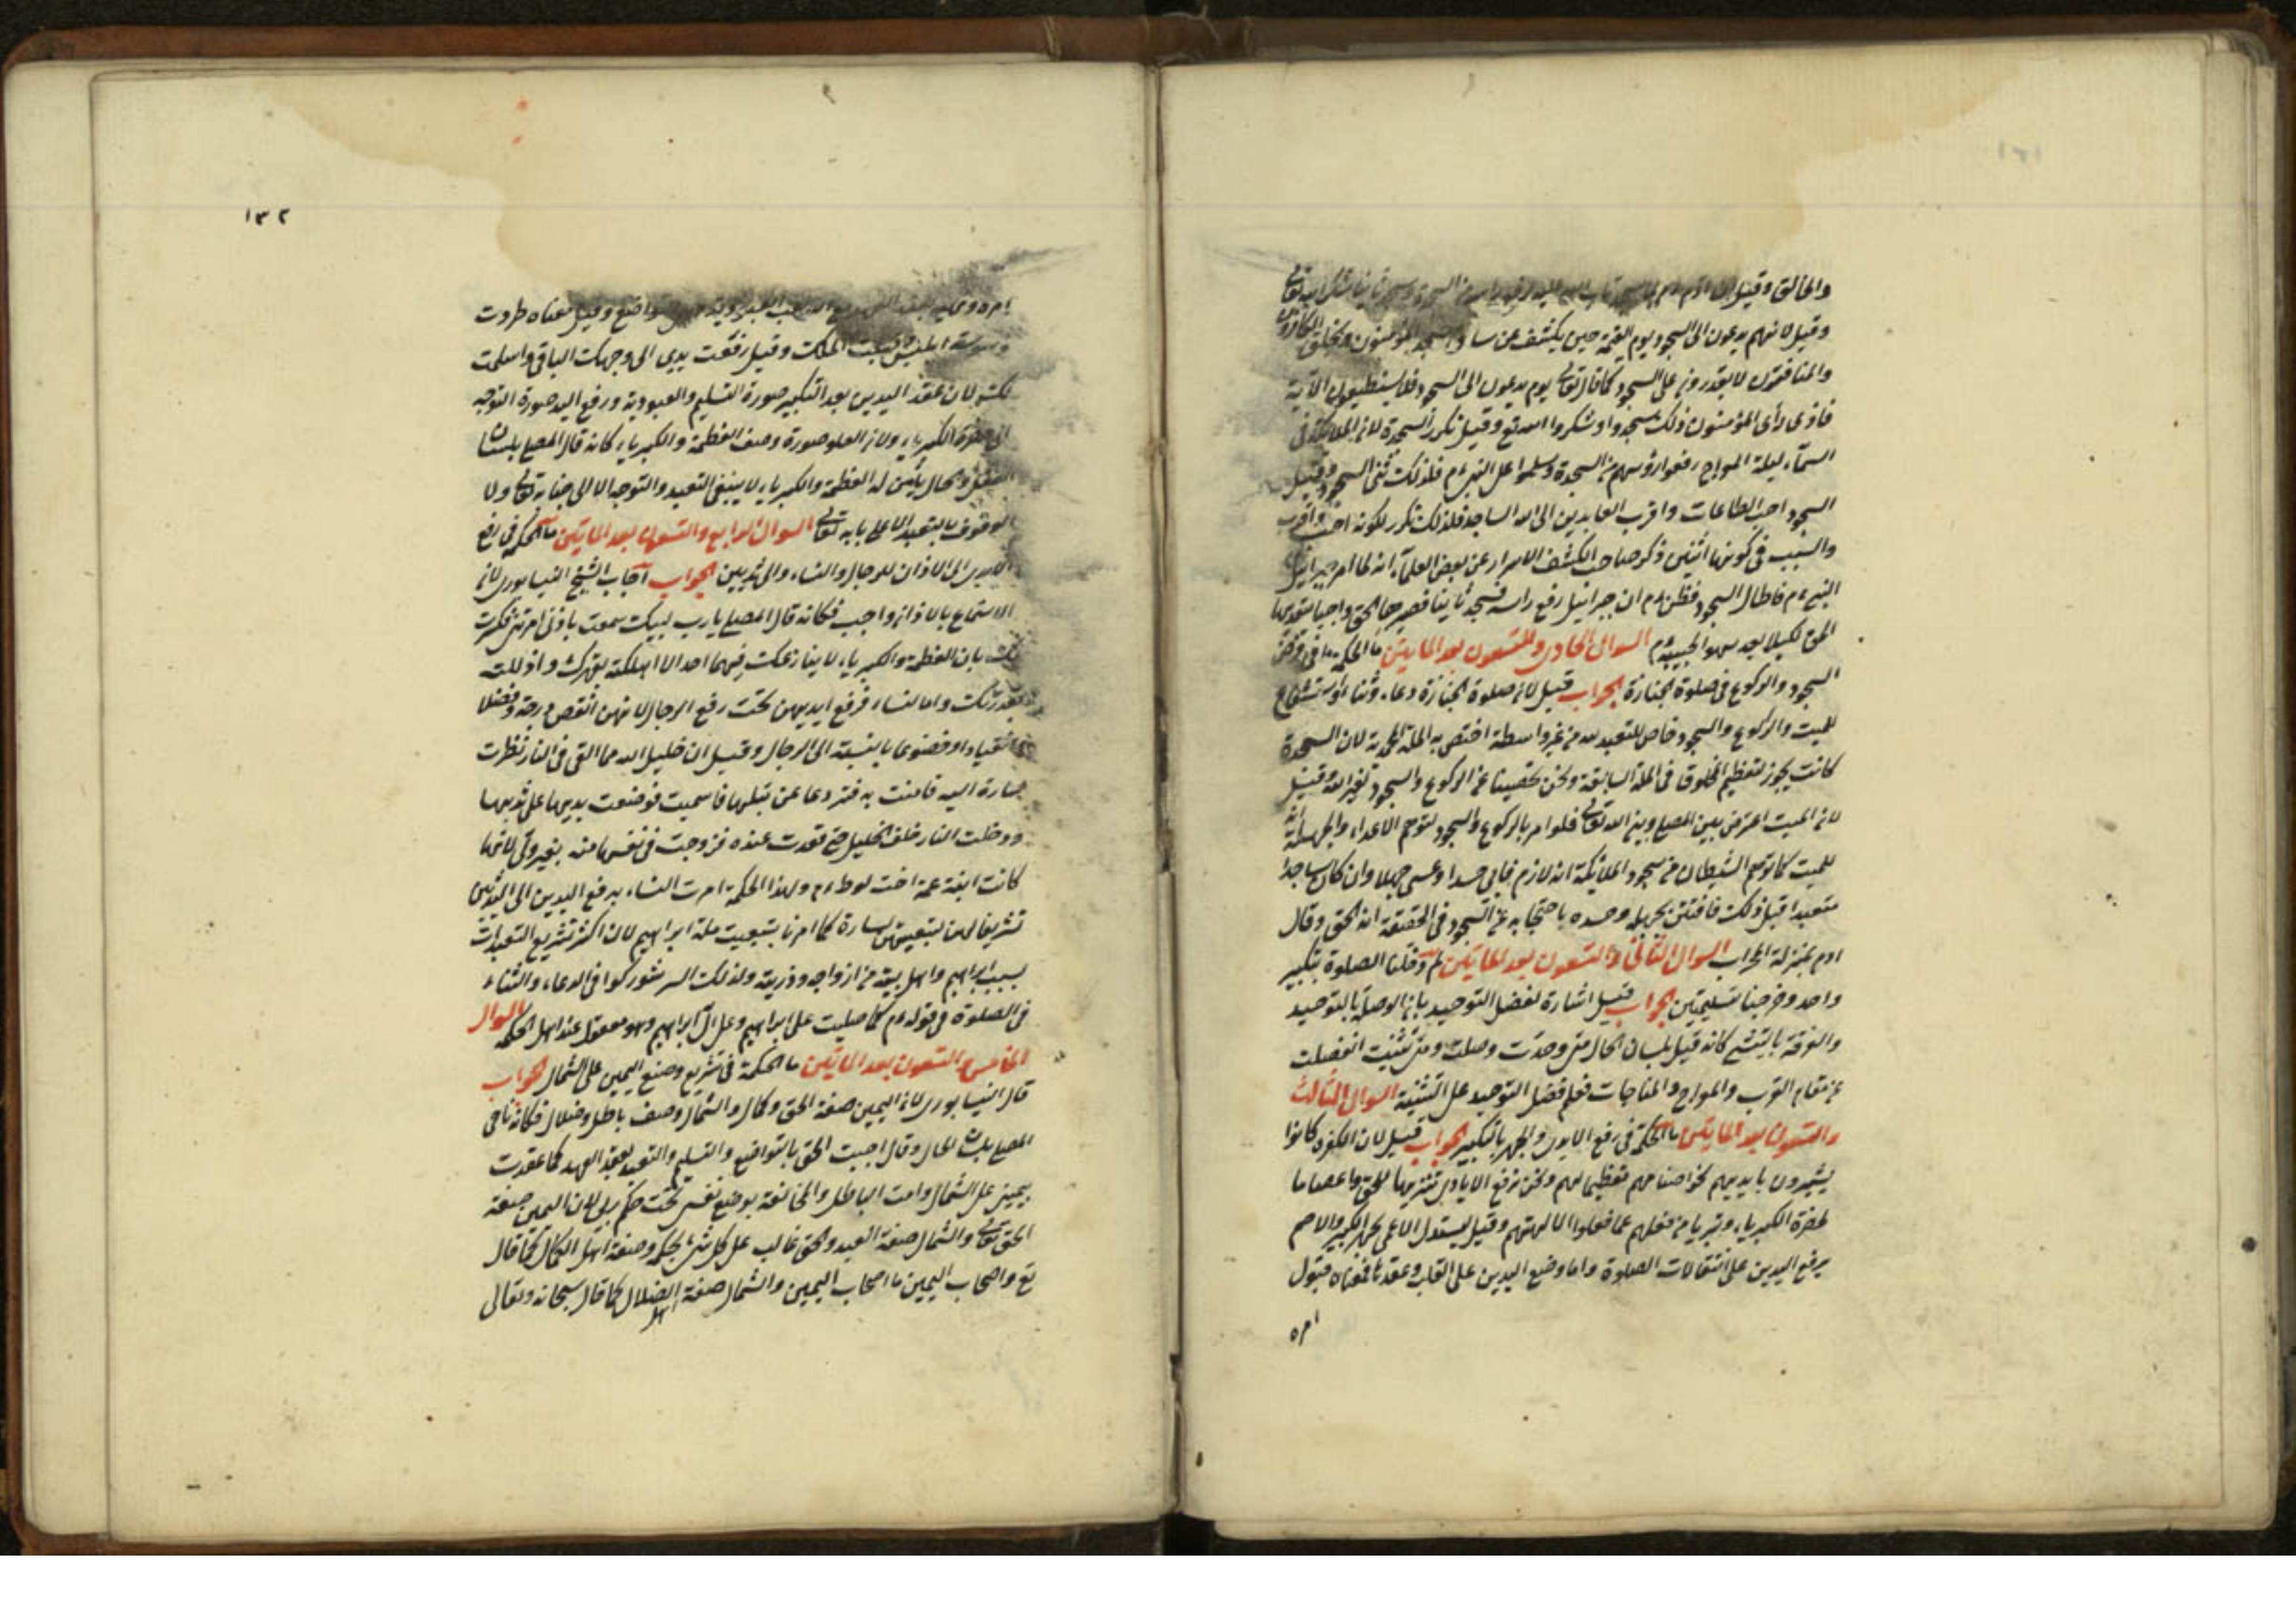 والخالق وقيل ان ادم
وقيل لانهم يدعون الى السجود يوم القيمة حين يكشف عن ساق المؤمنون
والمنافقون لا يقدرون على السجود كما قال تعالى يوم يدعون الى السجود فلا يستطيعون الآية
فاذى رأى المؤمنون ذلك سجدوا وشكروا الله تع وقيل تكرر السجدة لان الملائكة في
السمآء ليلة المعراج رفعوا رؤسهم من السجدة وسلموا على النبى ءم فلذلك ثنى السجود وقيل
السجود احب الطاعات واقرب العابدين الى الله الساجد فلذلك تكرر لكونه احب واقرب
والسبب فى كونها اثنين ذكر صاحب الكشف الاسرار عن بعض العلمآء انه لما امر جبرائيل
النبى ءم فاطال السجود فظن ءم ان جبرائيل رفع راسه فسجد ثانيا فصيرها الحق واجبا
الحق لكيلا يعد سهو الحبيب ءم السوال الحادى والتسعون بعد المايتين ما الحكمة فى
السجود والركوع فى صلوة الجنازة الجواب قيل لان صلوة الجنازة دعاء وثناء واستشفاع
للميت والركوع والسجود خاص للتعبد لله من غير واسطة اختص به الملة المحمدية لان السجدة
كانت يجوز لتعظيم المخلوق فى الملة السابقة ونحن نهينا عن الركوع والسجود لغير الله قيل
لان الميت اعترض بين المصلى وبين الله تعالى فلو امر بالركوع والسجود لتوهم الاعداء والجهلة انه
للميت كما توهم الشيطان من سجود الملائكة انه لادم فابى حسدا وعصى جهلا وان كان ساجدا
متعبدا قبل ذلك فافتتن بجهله وحسده باحتجابه عن السجود فى الحقيقة انه الحق وقال
ادم بمنزلة المحراب السوال الثانى والتسعون بعد المايتين لم دخلنا الصلوة بتكبير
واحد وخرجنا بتسليمتين الجواب قيل اشارة لفضل التوحيد بان الوصلة بالتوحيد
والفرقة بالتثنى كانه قيل بلسان الحال متى وحدت وصلت ومتى تثنيت انفصلت
عن مقام القرب والمعراج والمناجات فعلم فضل التوحيد على التثنية السوال الثالث
والتسعون بعد المايتين ما الحكمة فى رفع الايدى والجهر بالتكبير الجواب قيل لان الكفرة كانوا
يشيرون بايديهم نحو اصنامهم تعظيما لهم ونحن نرفع الايادى تنزيها للحق واعصاما
لحضرة الكبرياء وتبريا من فعلهم عما فعلوا لالهتهم وقيل ليستدل الاعمى بجهر التكبير والاصم
برفع اليدين على انتقالات الصلوة واما وضع اليدين على القلب وعقدها فمعناه قبول
امره
١٣٢
امره وقيل معناه طردت
وسوسة ابليس الملك وقيل رفعت يدى الى وجهك الباقى واسلمت
لان عقد اليدين بعد التكبير صورة التسليم والعبودية ورفع اليد صورة التوجه
الى حضرة الكبرياء ولان العلو صورة وصف العظمة والكبرياء كانه قال المصلى بلسان
والحال يا من له العظمة والكبرياء لا ينبغى التعبد والتوجه الا الى جنابه تعالى ولا
الوقوف بالتعبد الا على بابه تعالى السوال الرابع والتسعون بعد المايتين ما الحكمة فى رفع
الايدى الى الاذان للرجال والنساء والى ثديين الجواب اجاب الشيخ النيسابورى لان
الاستماع بالاذان واجب فكانه قال المصلى يارب لبيك سمعت باذنى امرتنى
بان العظمة والكبرياء لا ينازعك فيهما احد الا اهلكته بقهرك واذللته
بقدرتك واما النساء فرفع ايديهن تحت رفع الرجال لانهن انقص درجة وفضلا
وانقيادا وخضوعا بالنسبة الى الرجال وقيل ان خليل الله مما القى فى النار نظرت
سارة اليه فامنت به فوضعت يديها على ثديها
ودخلت النار خلف الخليل حتى قعدت عنده فزوجت فى نفسها منه بغير ولى لانها
كانت ابنة عمه اخت لوط ءم ولهذا الحكمة امرت النساء برفع اليدين الى الثديين
تشريفا لهن لتبعيتهن لسارة كما امرنا بتبعيت ملة ابراهيم لان اكثر تشريع التعبدات
بسبب ابراهيم واهل بيته من ازواجه وذريته ولذلك السر شوركوا فى الدعاء والثناء
فى الصلوة فى قوله ءم كما صليت على ابراهيم وعلى آل ابراهيم وهو معقول عند اهل الحكمة السوال
الخامس والتسعون بعد المايتين ما الحكمة فى تشريع وضع اليمين على الشمال الجواب
قال النيسابورى لان اليمين صفة الحق وكمال والشمال وصف باطل وضلال فكانه ناجى
المصلى بلسان الحال وقال اجبت الحق بالتواضع والتسليم والتعبد بعقد العهد كما عقدت
بيمينى على الشمال وامت الباطل والمخالفة بوضع نفسى تحت حكم ربى لان اليمين صفة
الحق تعالى والشمال صفة العبد والحق غالب على كل شئ بحكمه وصفة اهل الكمال كما قال
تع واصحاب اليمين ما اصحاب اليمين والشمال صفة اهل الضلال كما قال سبحانه وتعالى